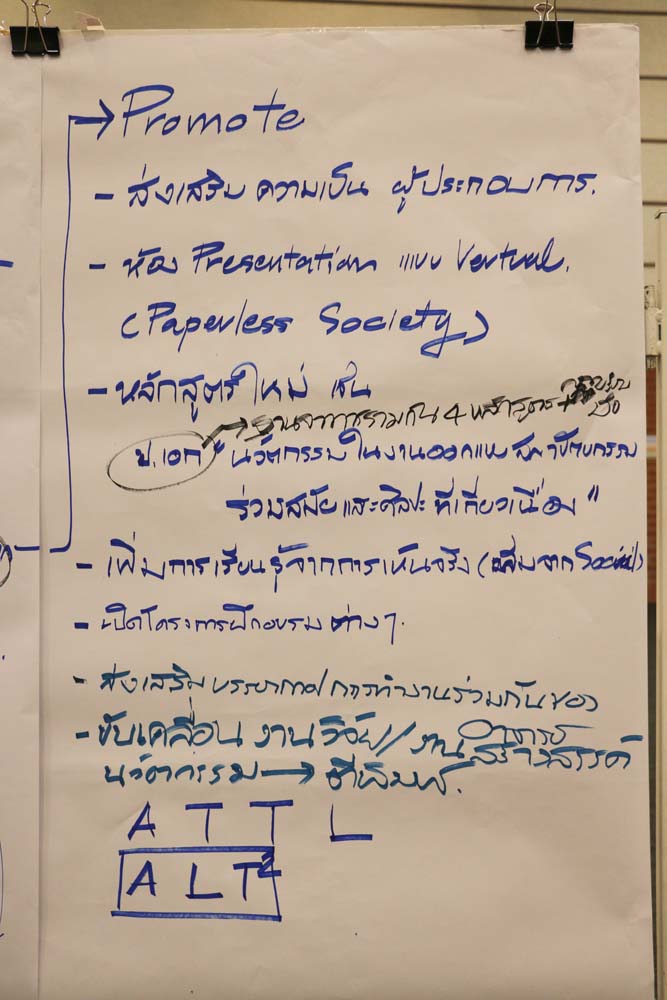 → Promote
- ส่งเสริม ความเป็น ผู้ประกอบการ.
- ห้อง Presentation แบบ Vertual.
(Paperless Society)
- หลักสูตรใหม่ เช่น
→ 4 หลักสูตร +
ป.เอก "นวัตกรรมในงานออกแบบสถาปัตยกรรม
ร่วมสมัยและศิลปะที่เกี่ยวเนื่อง"
- เพิ่มการเรียนรู้จากการเห็นจริง (เพิ่มจาก Social)
- เปิดโครงการฝึกอบรม ต่างๆ.
- ส่งเสริมบรรยากาศการทำงานร่วมกันของ
อาจารย์
- ขับเคลื่อน งานวิจัย/งานสร้างสรรค์
นวัตกรรม → ตีพิมพ์.
A T T L
A L T²